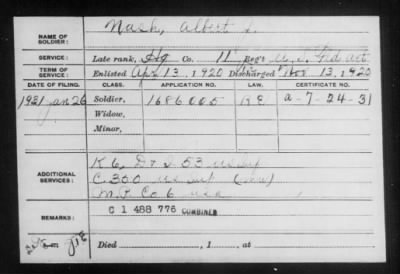 NAME OF SOLDIER: Nash, Albert L.
SERVICE: Late rank, Hq Co. 11" Reg't U.S. Fld art
TERM OF SERVICE: Enlisted Apr 13, 1920 Discharged Nov 13, 1920
DATE OF FILING. CLASS. APPLICATION NO. LAW. CERTIFICATE NO.
1931 Jan 26 Soldier, 1686005 a-7-24-31
Widow,
Minor,
ADDITIONAL SERVICES: K 6, 53 US
C 300
M.P. Co 6 usa
REMARKS: C 1 488 776 COMBINED
Died , 1 , at